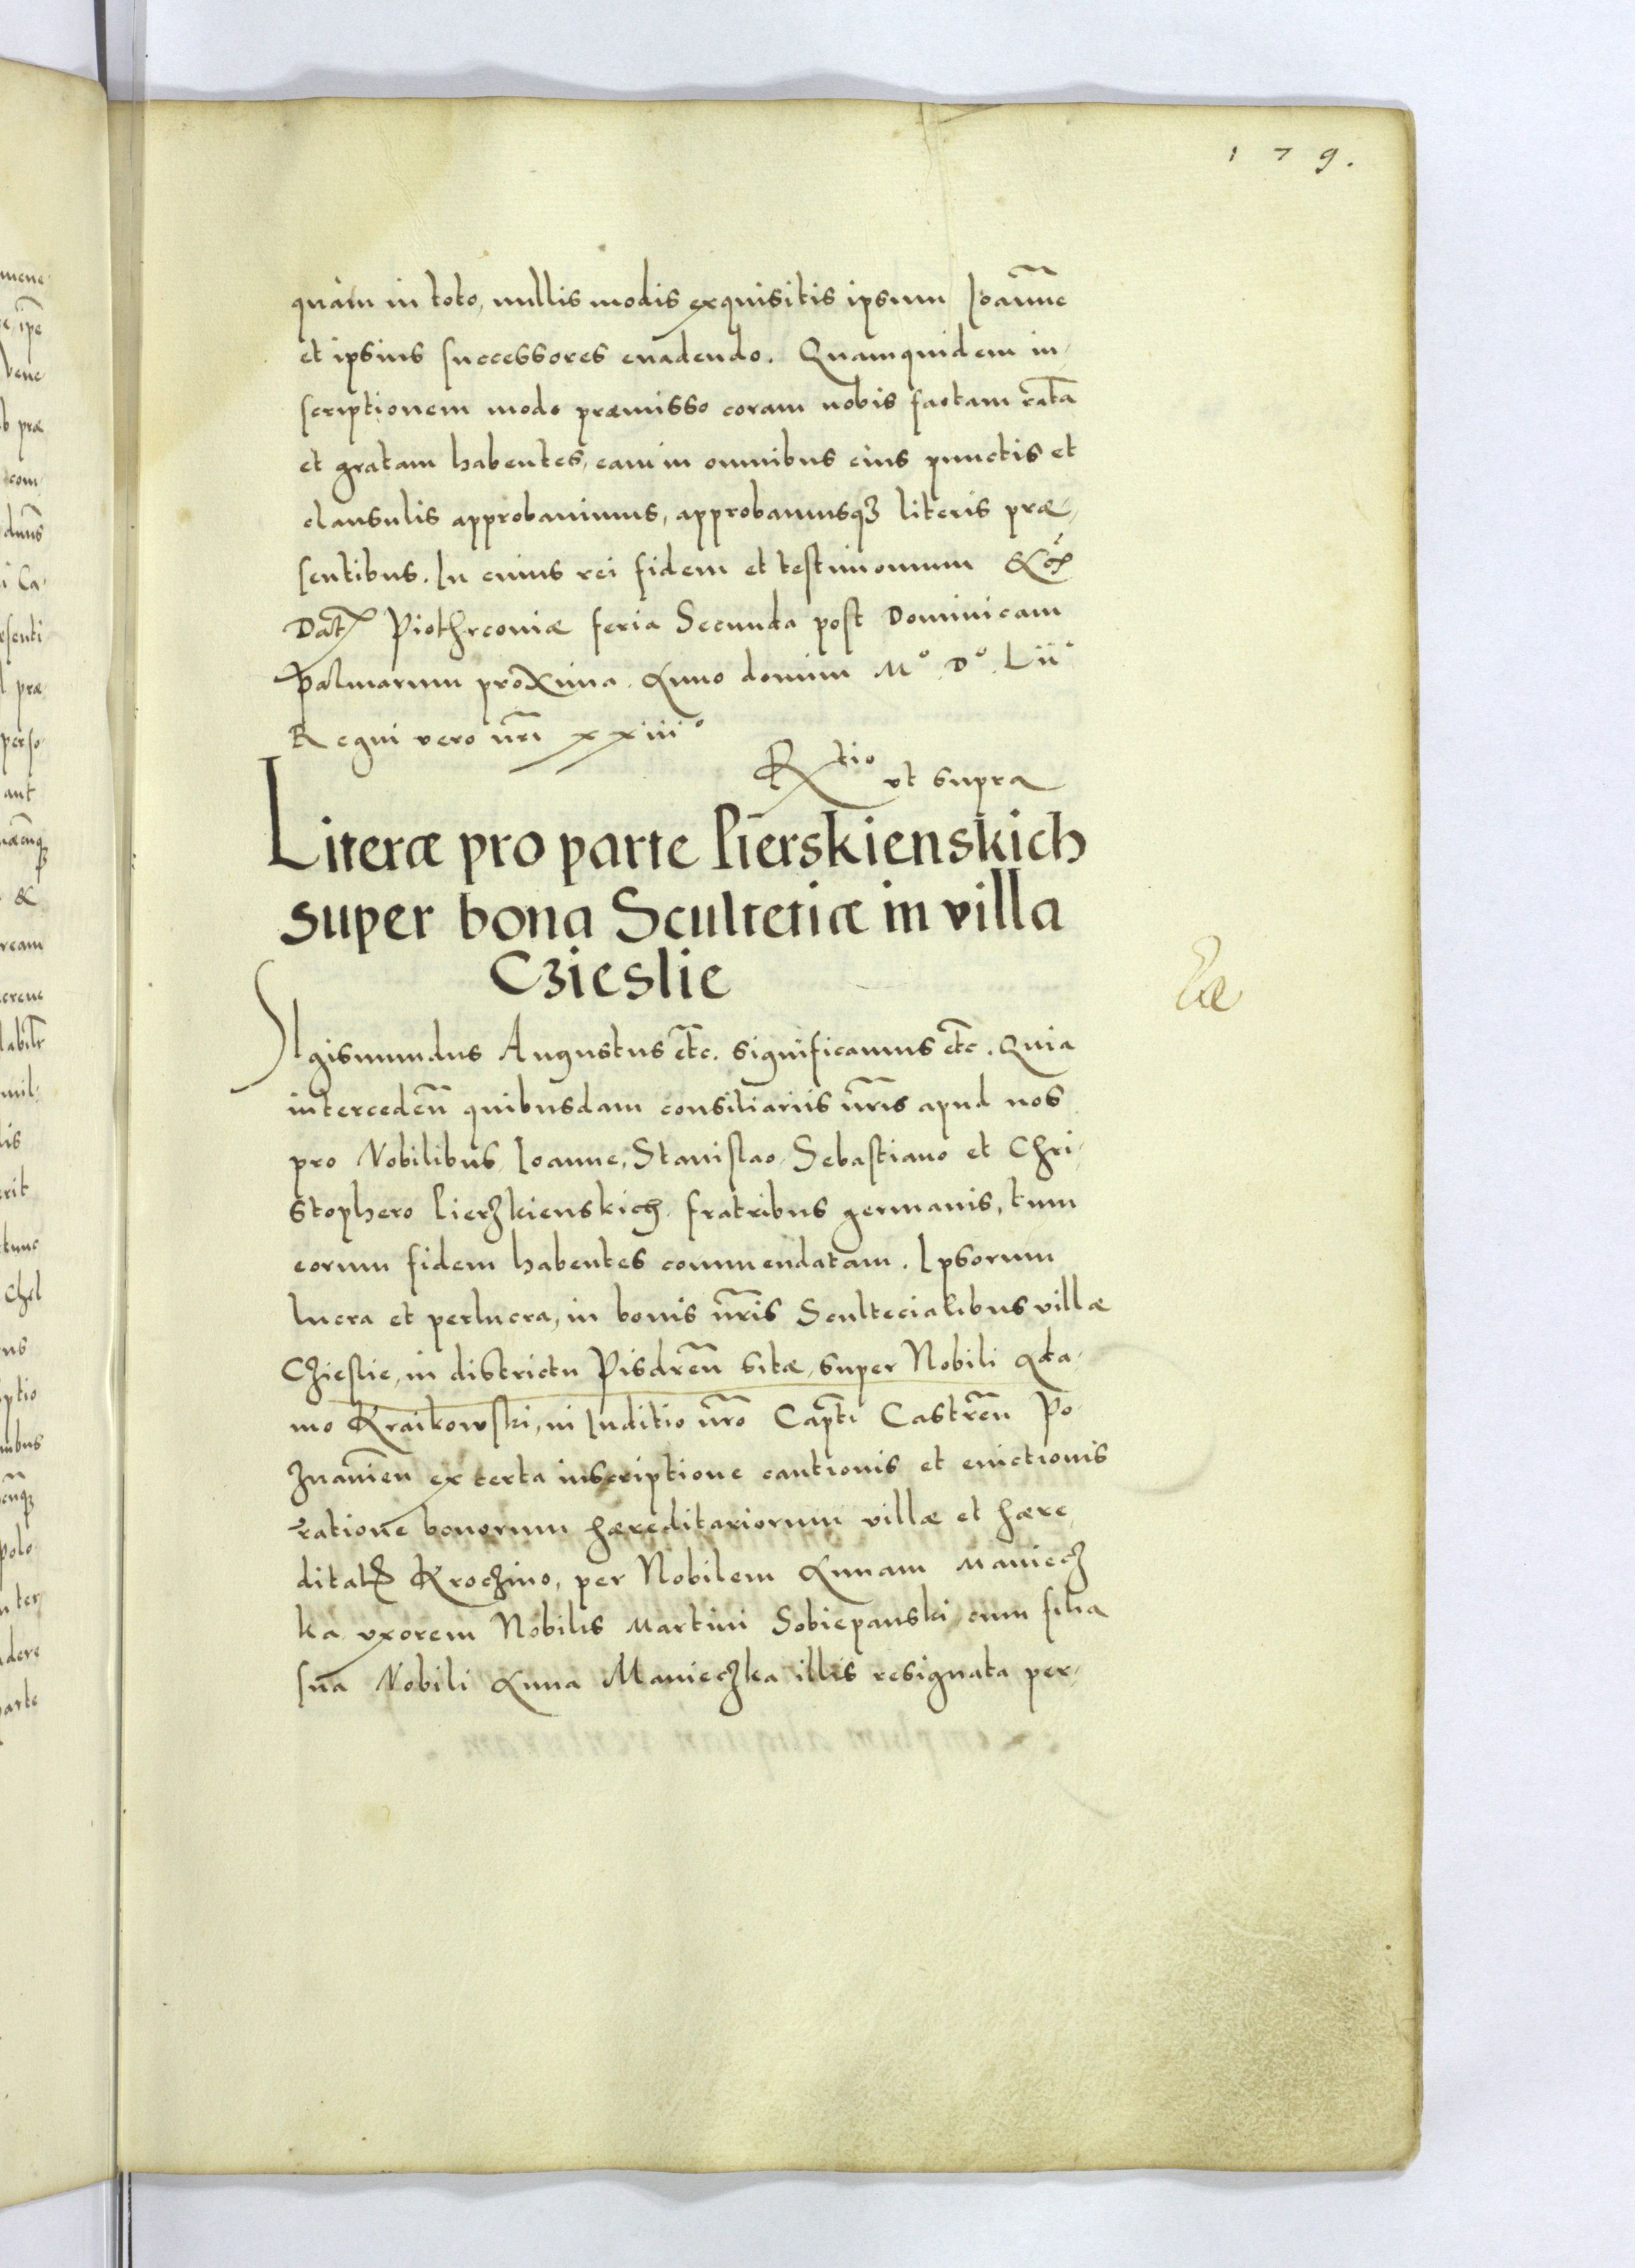 179.
quàm in toto, nullis modis exquisitis ipsum Ioan̄ne
et ipsius successores euadendo. Quamquidem in-
scriptionem modo præmisso coram nobis factam rata̅
et gratam habentes, eam in omnibus eius punctis et
clausulis approbauimus, approbamusqꝫ literis præ-
sentibus. In cuius rei fidem et testimonium &
Dat Piothrcouiæ feria Secunda post Dominicam
Palmarum proxima. Anno domini M° D° Lii°
Regni vero nr̄i xxiii°
Rtio vt supra
Literæ pro parte Pierskienskich
super bona Scultetiæ in villa
Czieslie
SIgismundus Augustus etc̄. significamus etc̄. Quia
interceden̄ quibusdam consiliariis nr̄is apud nos
pro Nobilibus Ioanne, Stanislao, Sebastiano et Chri-
stophero Pierzkienskich fratribus germanis, tum
eorum fidem habentes commendatam. Ipsorum
lucra et perlucra, in bonis nr̄is Scultecialibus villæ
Czieslie, in districtu Pisdren̄ sitæ, super Nobili Ada-
mo Kraikowski, in Iuditio nr̄o Capt̄i Castren̄ Po-
znanien̄ ex certa inscriptione cautionis et euictionis
ratione bonorum hæreditariorum villæ et hære
ditatꝭ Kroczino, per Nobilem Annam Maniecz
ka vxorem Nobilis Martini Sobiepanski cum filia
sua Nobili Anna Manieczka illis resignata per-